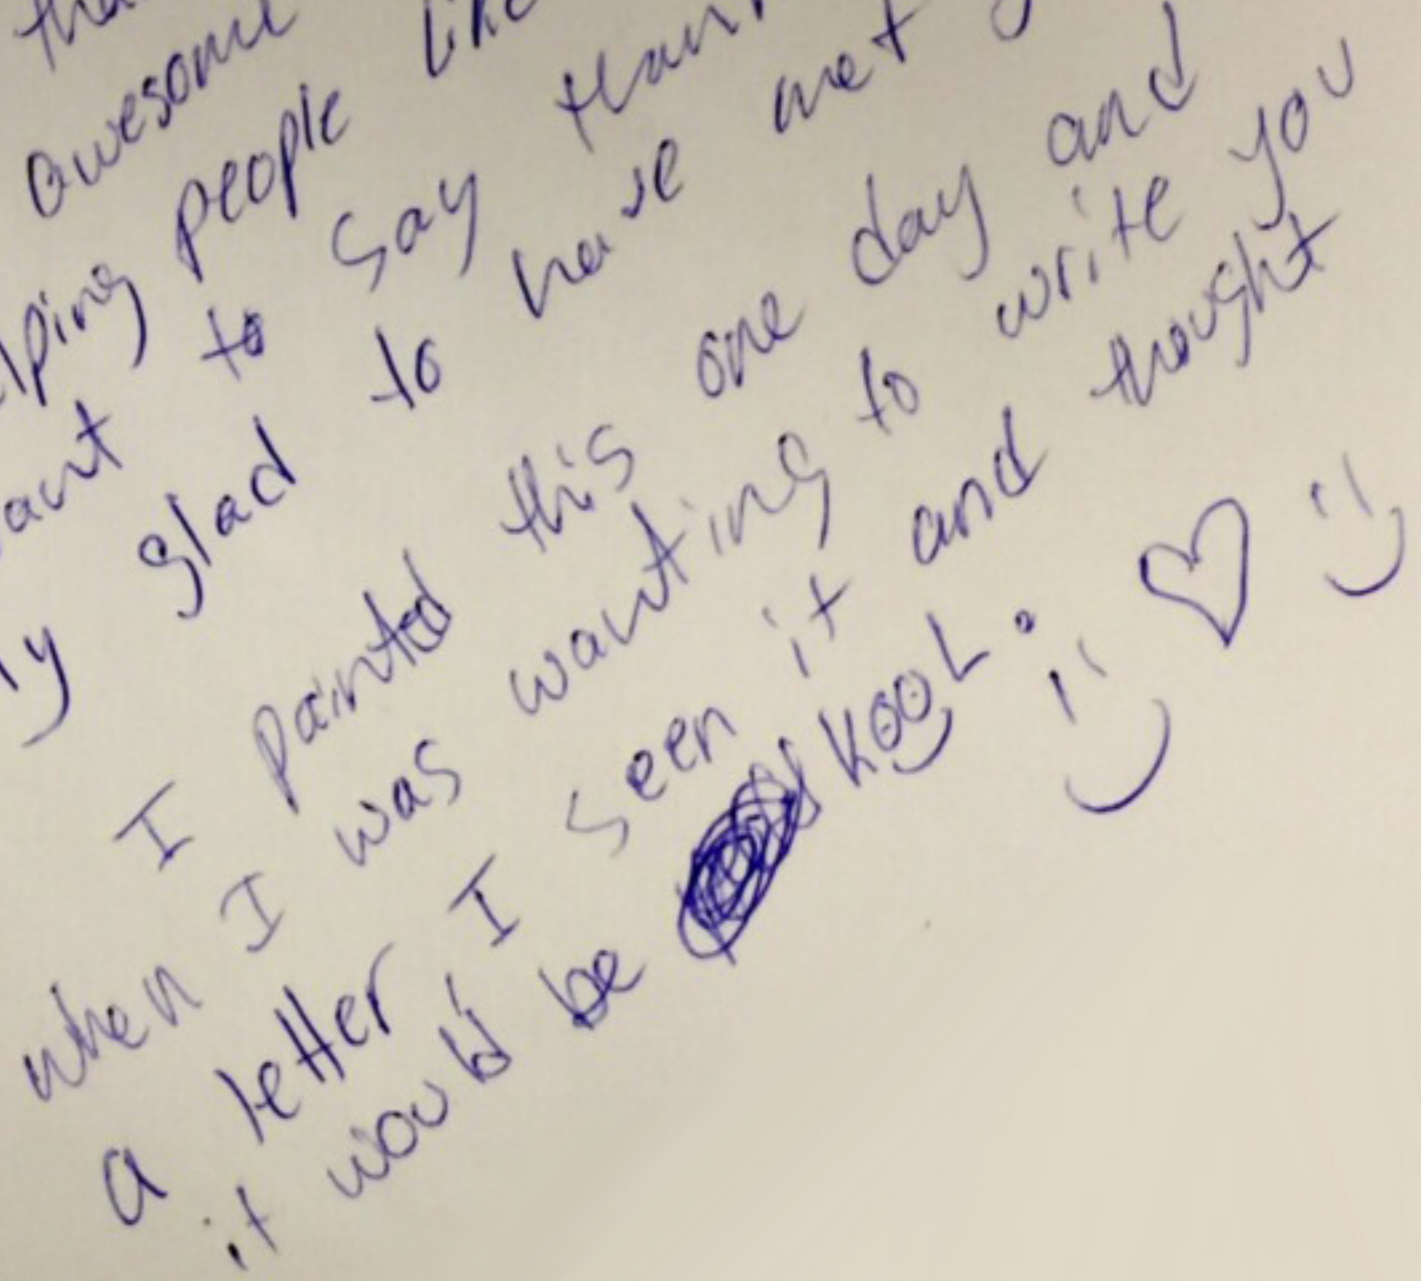 awesome
lping people like
ant to say than
ly glad to have met
I painted this one day and
when I was wanting to write you
a letter I seen it and thought
it would be KOOL. :) ♡ :)